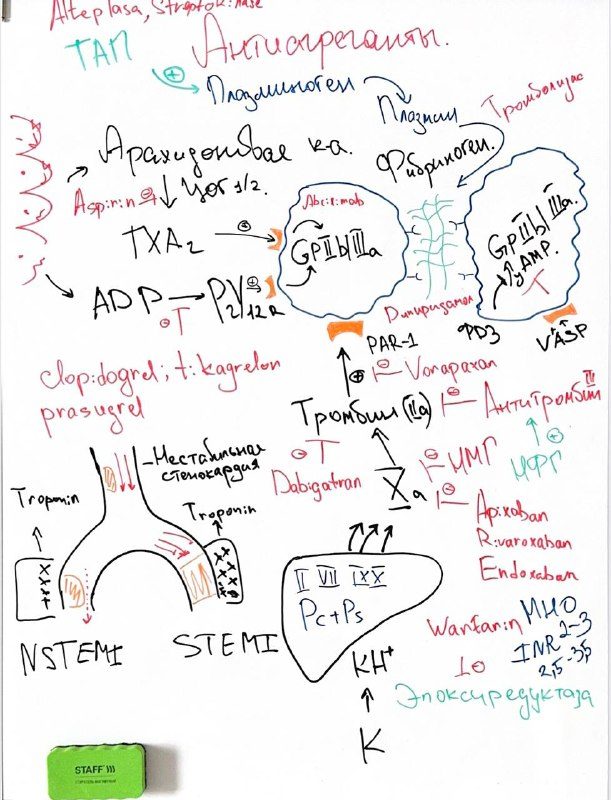 Alteplasa, Streptokinase
ТАП
Антиагреганты.
Плазминоген
Плазмин
Тромболизис
Арахидоновая к-та.
Фибриноген.
Aspirin
ЦОГ 1/2.
Abciximab
TXA2
GpIIb/IIIa
GpIIb/IIIa.
AMP.
ADP
P2Y12R
Дипиридамол
ФДЭ
VASP
PAR-1
Clopidogrel; tikagrelon
prasugrel
Vorapaxan
Тромбин (IIa)
Антитромбин III
Нестабильная
стенокардия
Dabigatran
НМГ
НФГ
Xa
Troponin
Troponin
Apixaban
Rivaroxaban
Endoxaban
II VII IX X
Pc+Ps
NSTEMI
STEMI
Warfarin
МНО
INR 2-3
2,5-3,5
KH+
Эпоксиредуктаза
K
STAFF